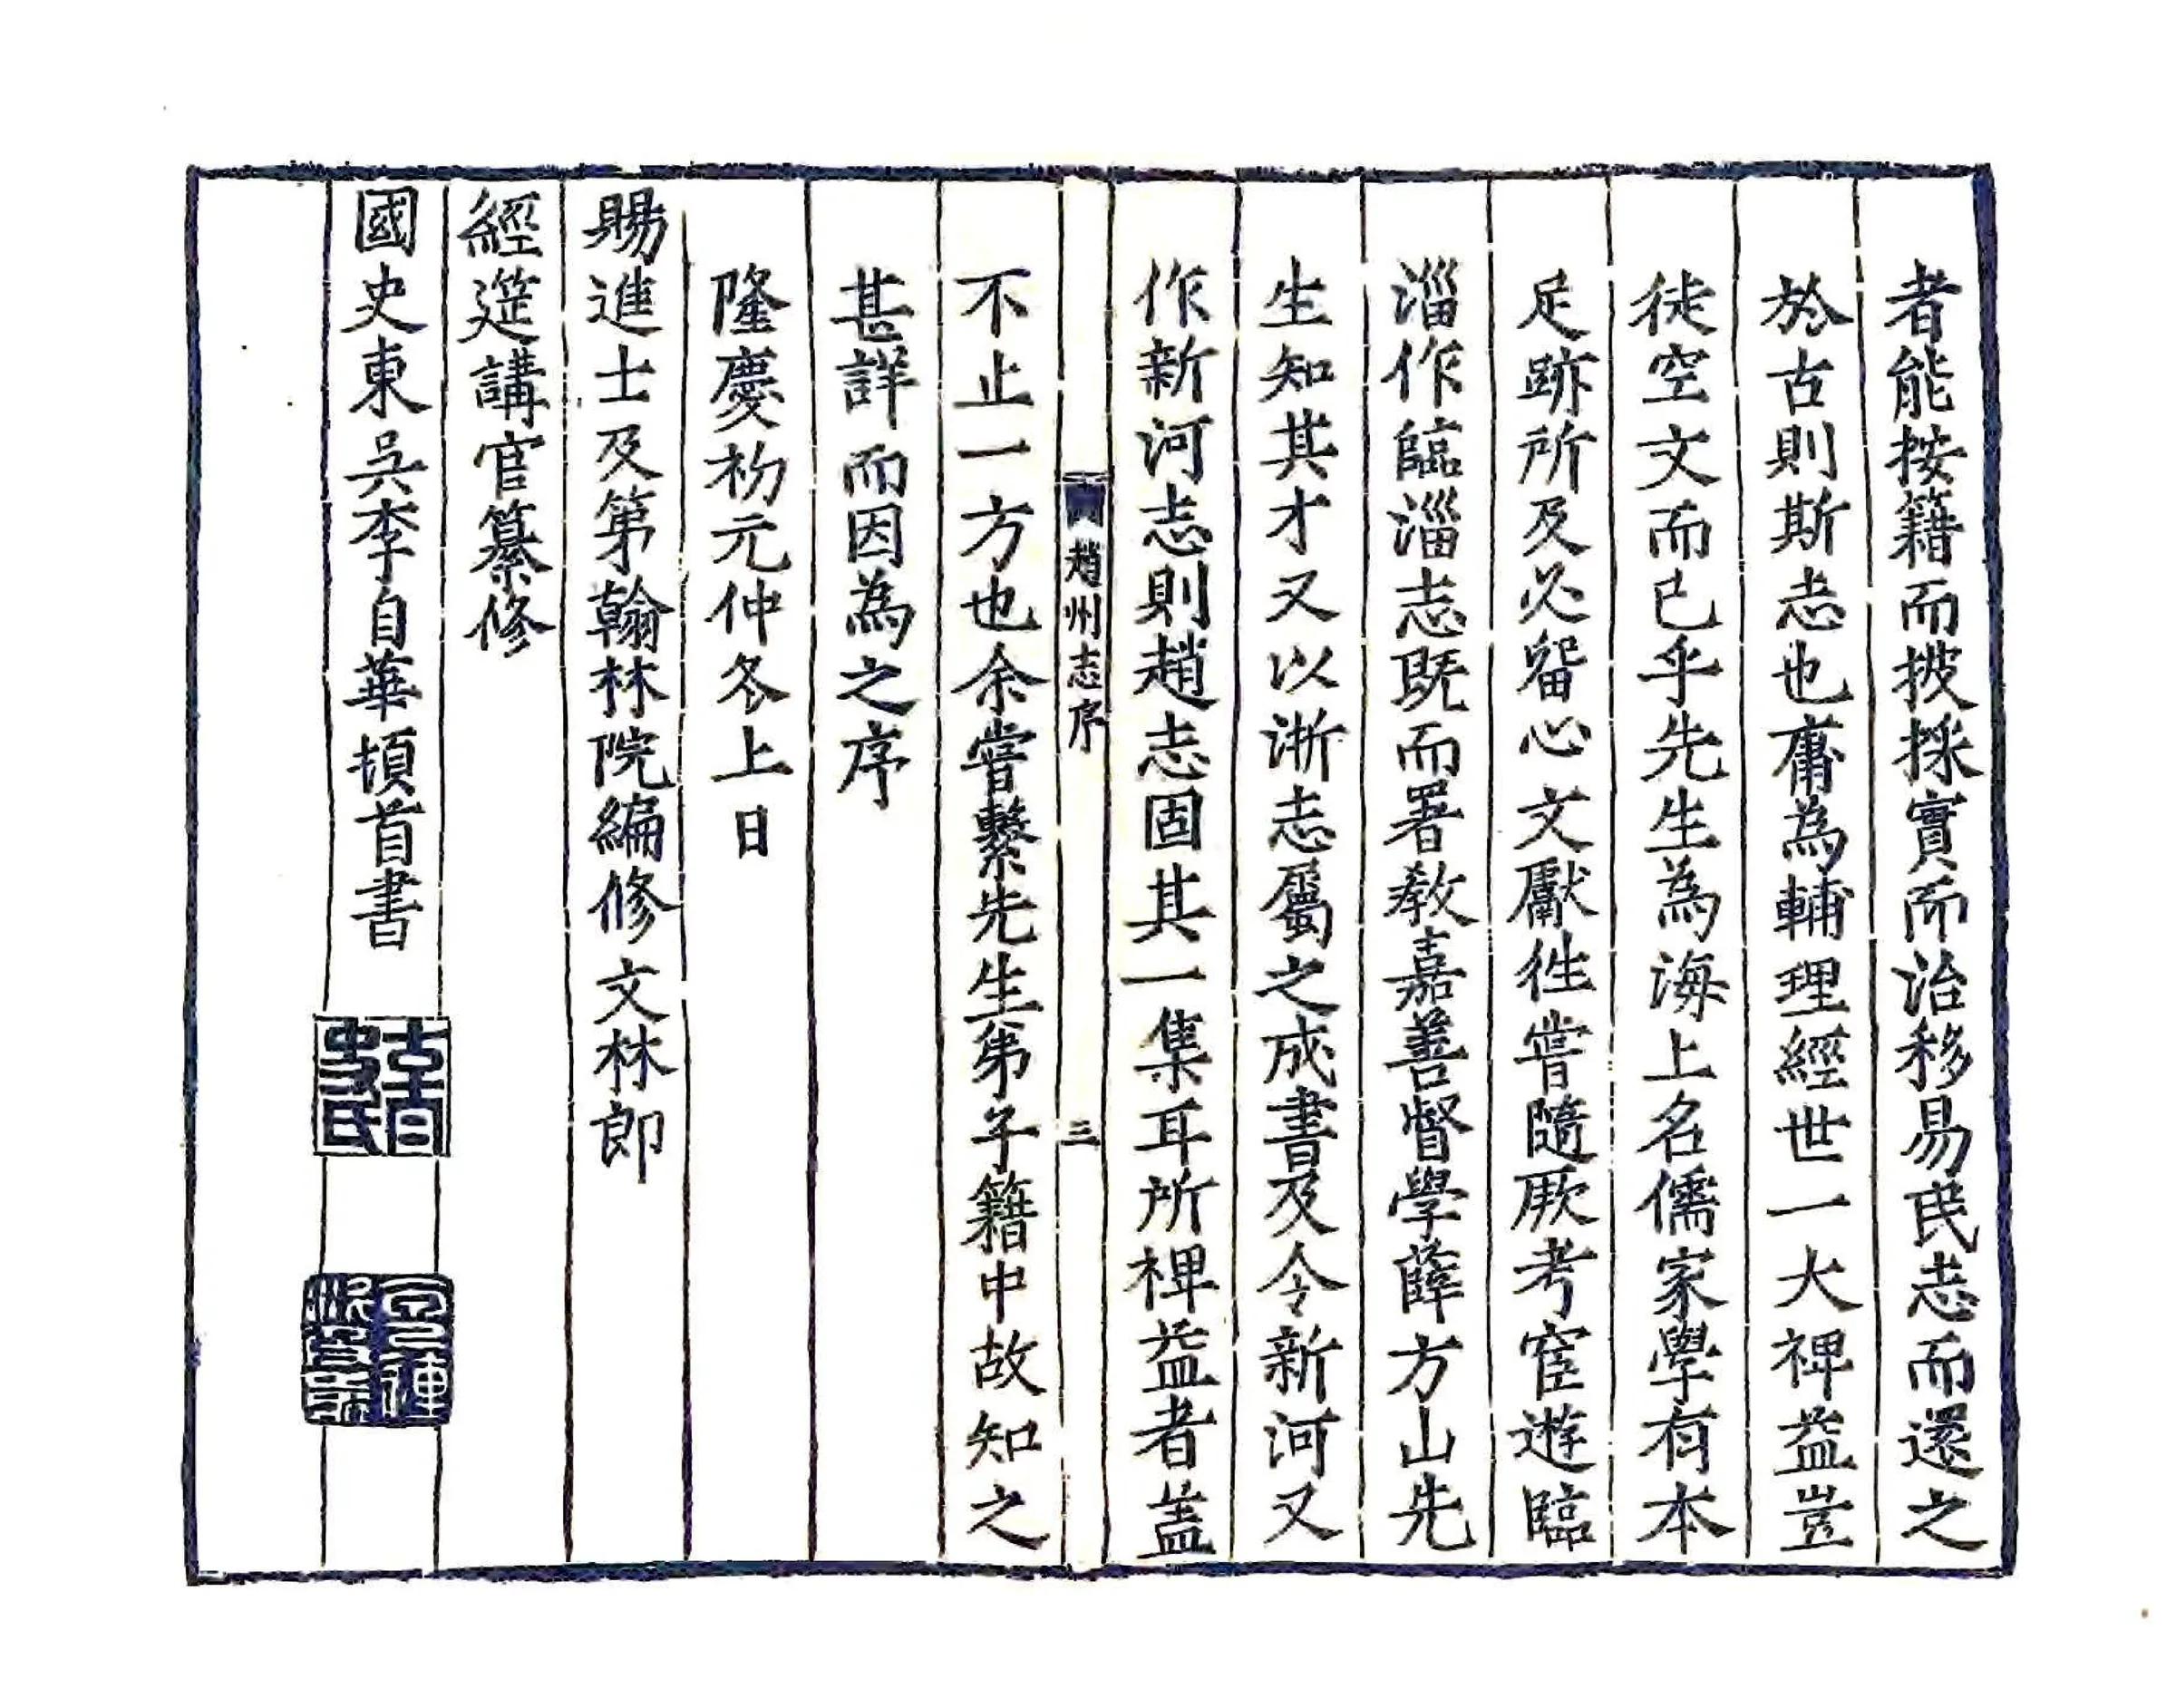 者能按籍而披採實而治移易民志而還之
於古則斯志也庸為輔理經世一大裨益豈
徒空文而已乎先生為海上名儒家學有本
足跡所及必留心文獻徃嘗隨厥考宦遊臨
淄作臨淄志既而署教嘉善督學薛方山先
生知其才又以浙志屬之成書及令新河又
作新河志則趙志固其一集耳所裨益者蓋
趙州志序
三
不止一方也余嘗繫先生弟子籍中故知之
甚詳而因為之序
隆慶初元仲冬上日
賜進士及第翰林院編修文林郎
經筵講官纂修
國史東吳李自華頓首書